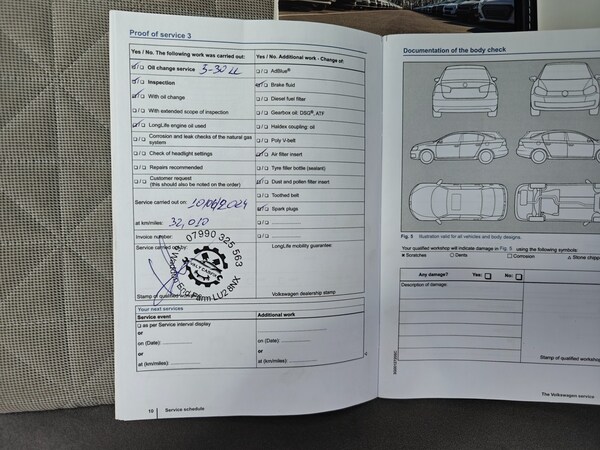 Proof of service 3
Yes / No. The following work was carried out:
Oil change service 5-30 LL
Inspection
With oil change
With extended scope of inspection
LongLife engine oil used
Corrosion and leak checks of the natural gas
system
Check of headlight settings
Repairs recommended
Customer request
(this should also be noted on the order)
Service carried out on:
at km/miles: 32,010
Invoice number:
Service carried out by:
07990 325 563
End Farm LU2 8NX
Stamp of qualified
Yes / No. Additional work - Change of:
AdBlue®
Brake fluid
Diesel fuel filter
Gearbox oil: DSG®, ATF
Haldex coupling: oil
Poly V-belt
Air filter insert
Tyre filler bottle (sealant)
Dust and pollen filter insert
Toothed belt
Spark plugs
LongLife mobility guarantee:
Volkswagen dealership stamp
Your next services
Service event
as per Service interval display
or
on (Date):
or
at (km/miles):
Additional work
on (Date):
or
at (km/miles):
16 Service schedule
Documentation of the body check
Fig. 5 Illustration valid for all vehicles and body designs.
Your qualified workshop will indicate damage in Fig. 5 using the following symbols:
Scratches Dents Corrosion Stone chipp
Any damage? Yes: No:
Description of damage:
Stamp of qualified workshop
The Volkswagen service